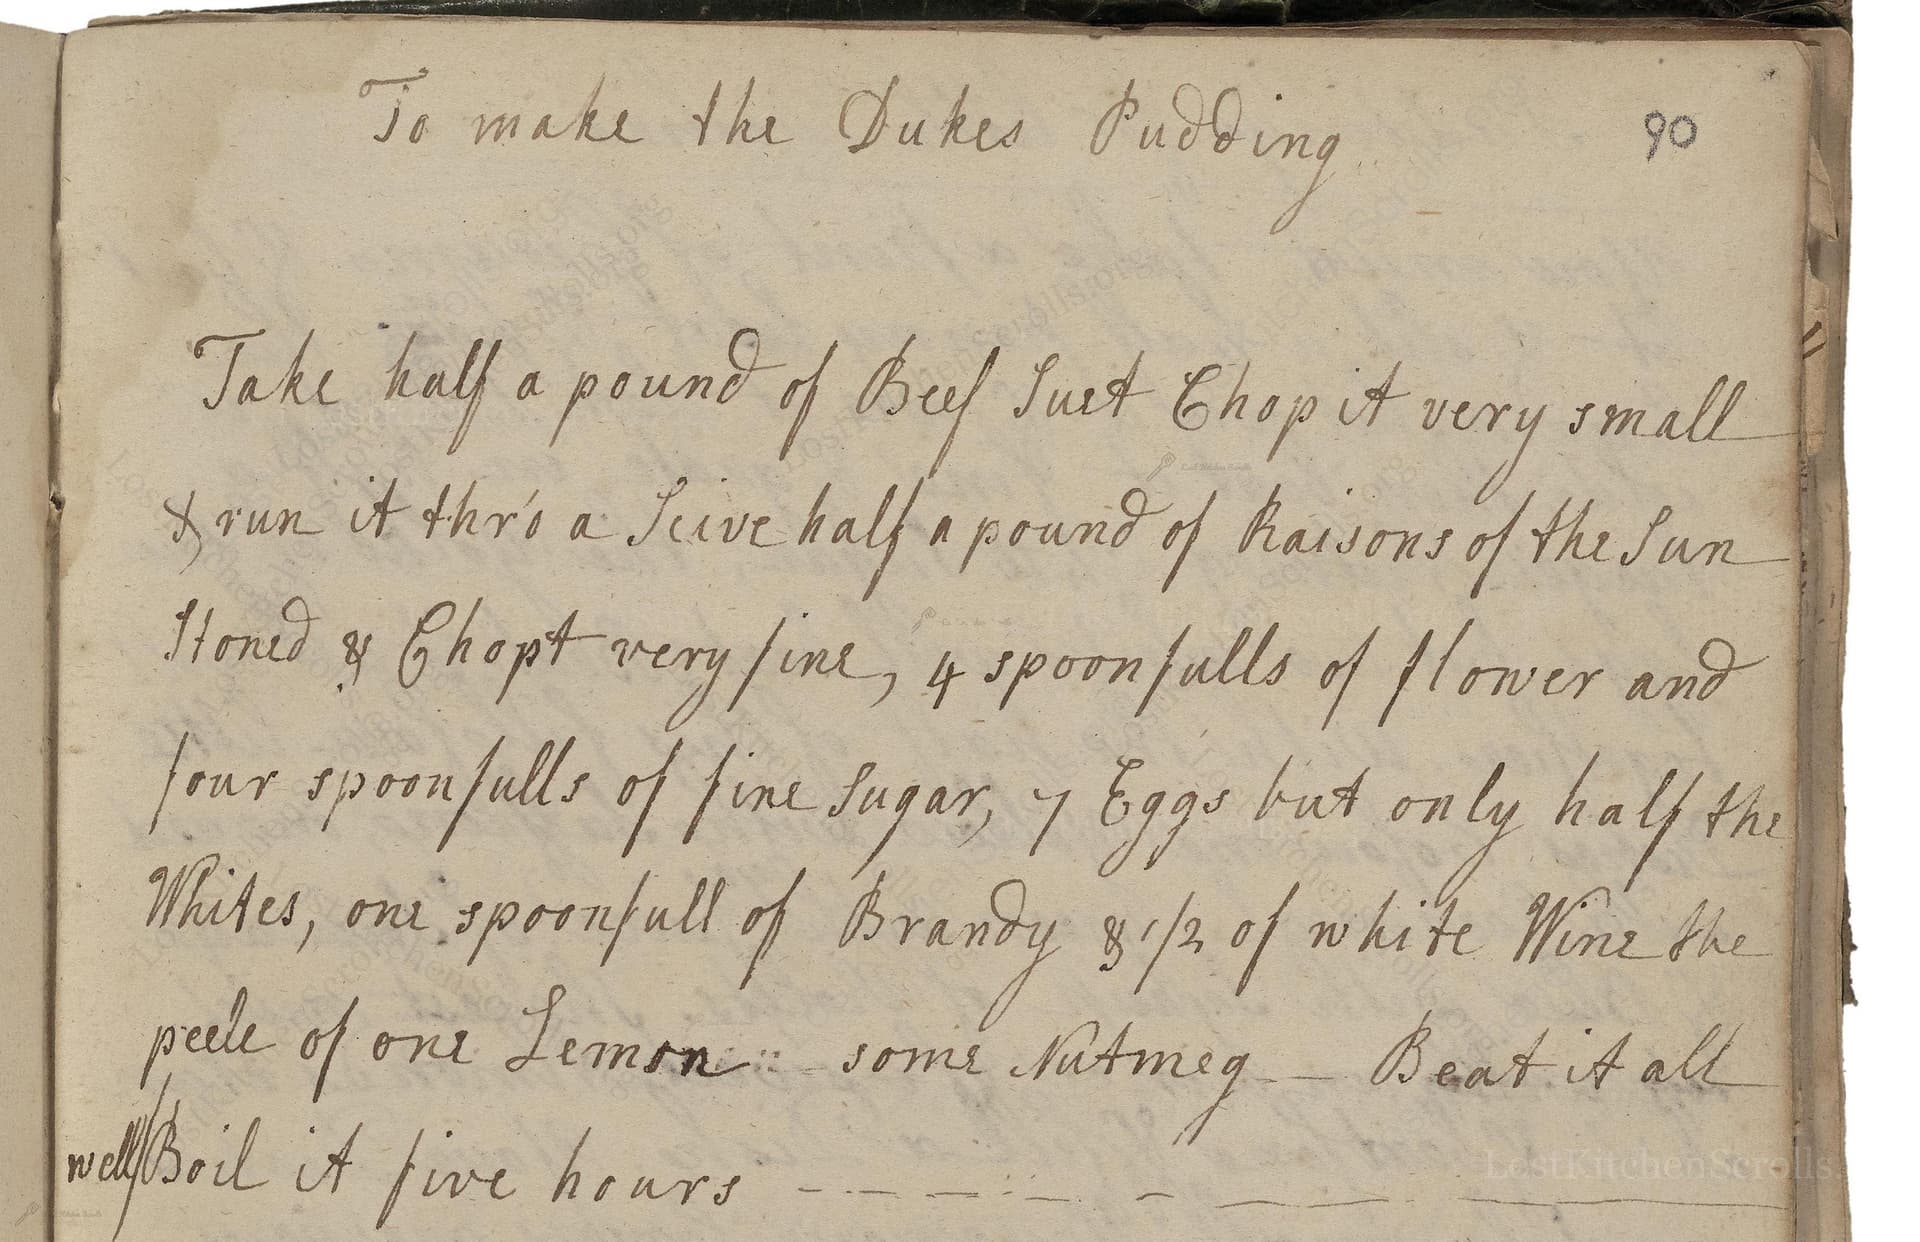 To make the Dukes Pudding
90
Take half a pound of Beef Suet Chop it very small
& run it thro' a Seive half a pound of Raisons of the Sun
Stoned & Chopt very fine, 4 spoonfulls of flower and
four spoonfulls of fine Sugar, 7 Eggs but only half the
Whites, one spoonfull of Brandy & 1/2 of white Wine the
peele of one Lemon some Nutmeg — Beat it all
well/Boil it five hours
LostKitchenScrolls